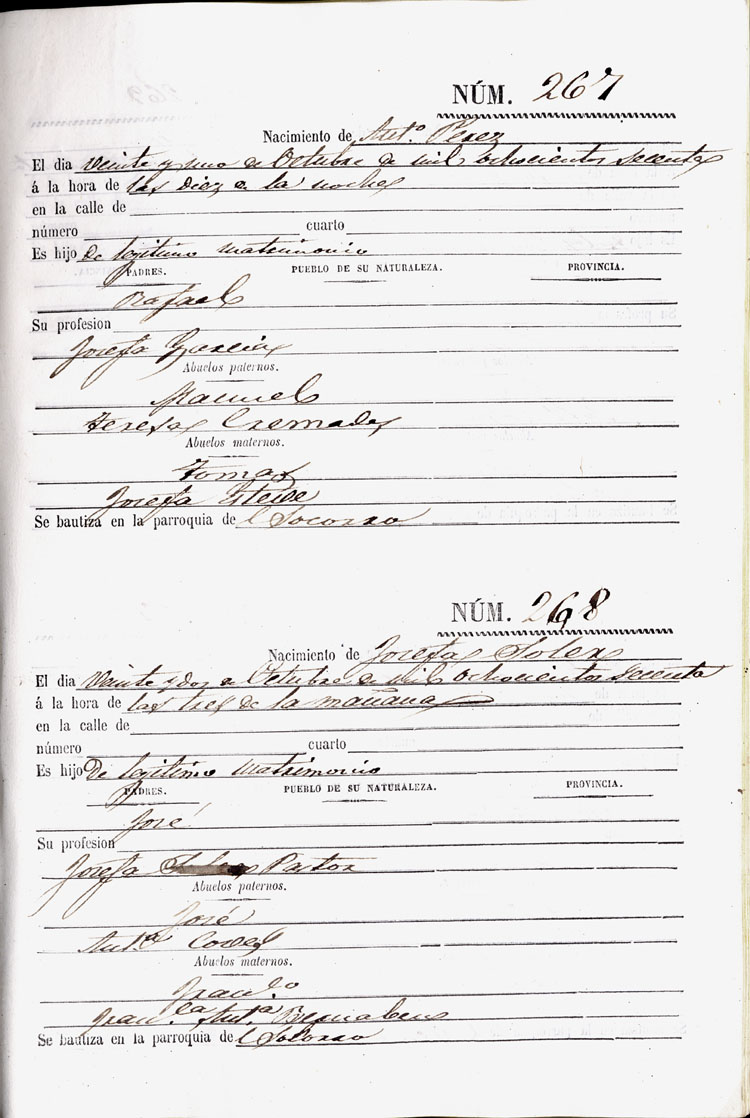 NÚM. 267
Nacimiento de Ant.º Perez
El dia Veinte y uno de Octubre de mil ochocientos secenta
á la hora de las diez de la noche
en la calle de
número cuarto
Es hijo de legitimo matrimonio
PADRES. PUEBLO DE SU NATURALEZA. PROVINCIA.
Rafael
Su profesion
Josefa Garcia
Abuelos paternos.
Manuel
Teresa Cremades
Abuelos maternos.
Tomas
Josefa Esteve
Se bautiza en la parroquia del Socorro
NÚM. 268
Nacimiento de Josefa Soler
El dia Veinte y dos de Octubre de mil ochocientos secenta
á la hora de las tres de la mañana
en la calle de
número cuarto
Es hijo De legitimo matrimonio
PADRES. PUEBLO DE SU NATURALEZA. PROVINCIA.
José
Su profesion
Josefa Pastor
Abuelos paternos.
José
Ant.ª Coves
Abuelos maternos.
Fran.co
Fran.ca Ant.ª Bernabeu
Se bautiza en la parroquia del Socorro